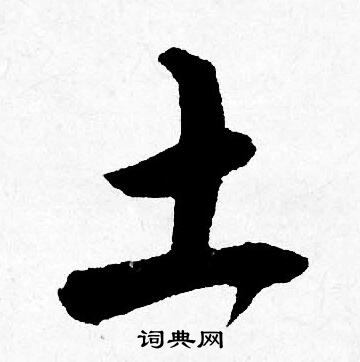 土
词典网